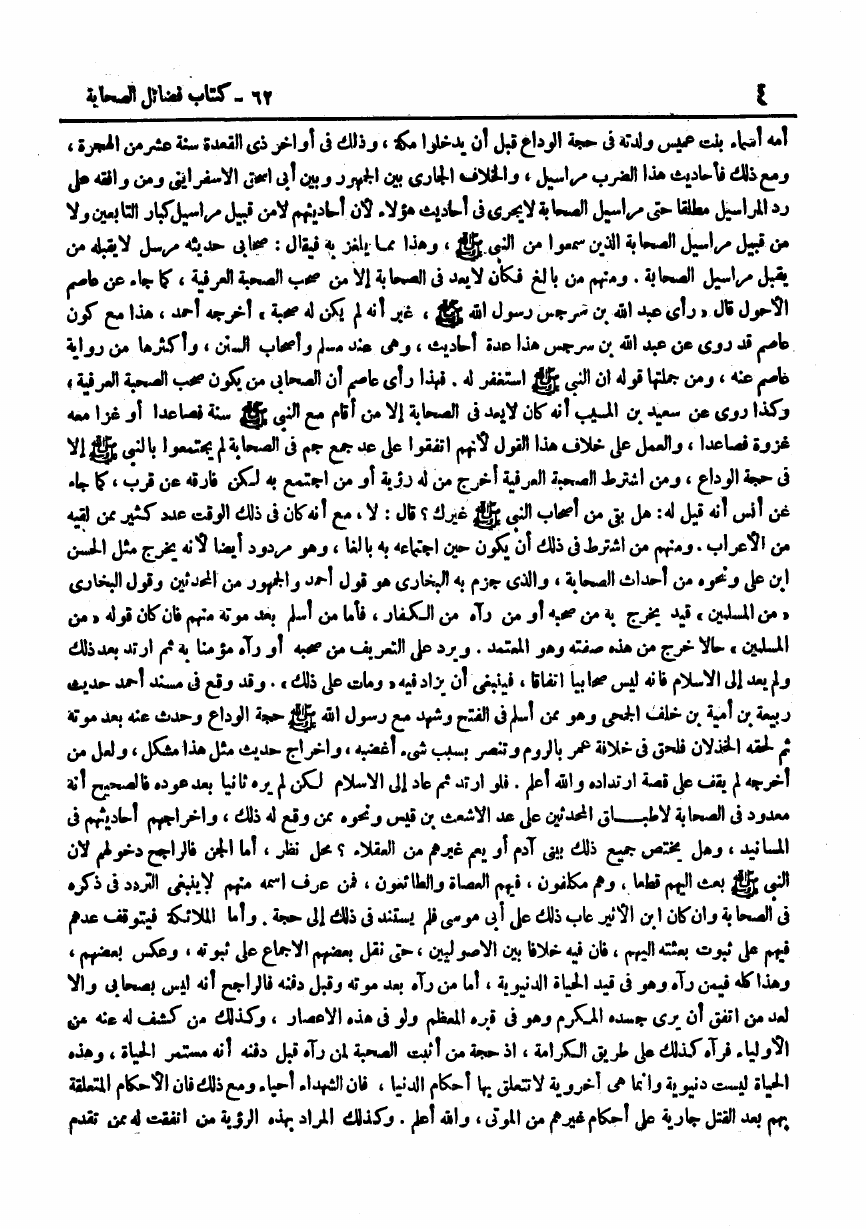 ٤
٦٢ - كتاب فضائل الصحابة
أمه أسماء بنت عميس ولدته فى حجة الوداع قبل أن يدخلوا مكة ، وذلك فى أواخر ذى القعدة سنة عشر من الهجرة ،
ومع ذلك فأحاديث هذا الضرب مراسيل ، والخلاف الجارى بين الجمهور وبين أبى اسحق الاسفراينى ومن وافقه على
رد المراسيل مطلقا حتى مراسيل الصحابة لايجرى فى أحاديث هؤلاء لأن أحاديثهم لامن قبيل مراسيل كبار التابعين ولا
من قبيل مراسيل الصحابة الذين سمعوا من النبى ﷺ ، وهذا مما يلغز به فيقال : صحابى حديثه مرسل لايقبله من
يقبل مراسيل الصحابة . ومنهم من بالغ فكان لايعد فى الصحابة إلا من صحب الصحبة العرفية ، كما جاء عن عاصم
الأحول قال « رأى عبد الله بن سرجس رسول الله ﷺ ، غير أنه لم يكن له صحبة » أخرجه أحمد ، هذا مع كون
عاصم قد روى عن عبد الله بن سرجس هذا عدة أحاديث ، وهى عند مسلم وأصحاب السنن ، وأكثرها من رواية
عاصم عنه ، ومن جملتها قوله ان النبى ﷺ استغفر له . فهذا رأى عاصم أن الصحابى من يكون صحب الصحبة العرفية ،
وكذا روى عن سعيد بن المسيب أنه كان لايعد فى الصحابة إلا من أقام مع النبى ﷺ سنة فصاعدا أو غزا معه
غزوة فصاعدا ، والعمل على خلاف هذا القول لأنهم اتفقوا على عد جمع جم فى الصحابة لم يجتمعوا بالنبى ﷺ إلا
فى حجة الوداع ، ومن اشترط الصحبة العرفية أخرج من له رؤية أو من اجتمع به لكن فارقه عن قرب ، كما جاء
عن أنس أنه قيل له : هل بقى من أصحاب النبى ﷺ غيرك ؟ قال : لا ، مع أنه كان فى ذلك الوقت عدد كثير ممن لقيه
من الأعراب . ومنهم من اشترط فى ذلك أن يكون حين اجتماعه به بالغا ، وهو مردود أيضا لأنه يخرج مثل الحسن
ابن على ونحوه من أحداث الصحابة ، والذى جزم به البخارى هو قول أحمد والجمهور من المحدثين وقول البخارى
« من المسلمين » قيد يخرج به من صحبه أو من رآه من الكفار ، فأما من أسلم بعد موته منهم فان كان قوله « من
المسلمين » حالا خرج من هذه صفته وهو المعتمد . ويرد على التعريف من صحبه أو رآه مؤمنا به ثم ارتد بعد ذلك
ولم يعد إلى الاسلام فانه ليس صحابيا اتفاقا ، فينبغى أن يزاد فيه « ومات على ذلك » . وقد وقع فى مسند أحمد حديث
ربيعة بن أمية بن خلف الجمحى وهو ممن أسلم فى الفتح وشهد مع رسول الله ﷺ حجة الوداع وحدث عنه بعد موته
ثم لحقه الخذلان فلحق فى خلافة عمر بالروم وتنصر بسبب شىء أغضبه ، واخراج حديث مثل هذا مشكل ، ولعل من
أخرجه لم يقف على قصة ارتداده والله أعلم . فلو ارتد ثم عاد إلى الاسلام لكن لم يره ثانيا بعد عوده فالصحيح أنه
معدود فى الصحابة لاطباق المحدثين على عد الاشعث بن قيس ونحوه ممن وقع له ذلك ، واخراجهم أحاديثهم فى
المسانيد ، وهل يختص جميع ذلك ببنى آدم أو يعم غيرهم من العقلاء ؟ محل نظر ، أما الجن فالراجح دخولهم لان
النبى ﷺ بعث اليهم قطعا ، وهم مكلفون ، فيهم العصاة والطائعون ، فمن عرف اسمه منهم لاينبغى التردد فى ذكره
فى الصحابة وان كان ابن الأثير عاب ذلك على أبى موسى فلم يستند فى ذلك إلى حجة . وأما الملائكة فيتوقف عدهم
فيهم على ثبوت بعثته اليهم ، فان فيه خلافا بين الاصوليين ، حتى نقل بعضهم الاجماع على ثبوته ، وعكس بعضهم ،
وهذا كله فيمن رآه وهو فى قيد الحياة الدنيوية ، أما من رآه بعد موته وقبل دفنه فالراجح أنه ليس بصحابى والا
لعد من اتفق أن يرى جسده المكرم وهو فى قبره المعظم ولو فى هذه الاعصار ، وكذلك من كشف له عنه من
الأولياء فرآه كذلك على طريق الكرامة ، اذ حجة من أثبت الصحبة لمن رآه قبل دفنه أنه مستمر الحياة ، وهذه
الحياة ليست دنيوية وانما هى أخروية لاتتعلق بها أحكام الدنيا ، فان الشهداء أحياء ومع ذلك فان الأحكام المتعلقة
بهم بعد القتل جارية على أحكام غيرهم من الموتى ، والله أعلم . وكذلك المراد بهذه الرؤية من اتفقت له ممن تقدم